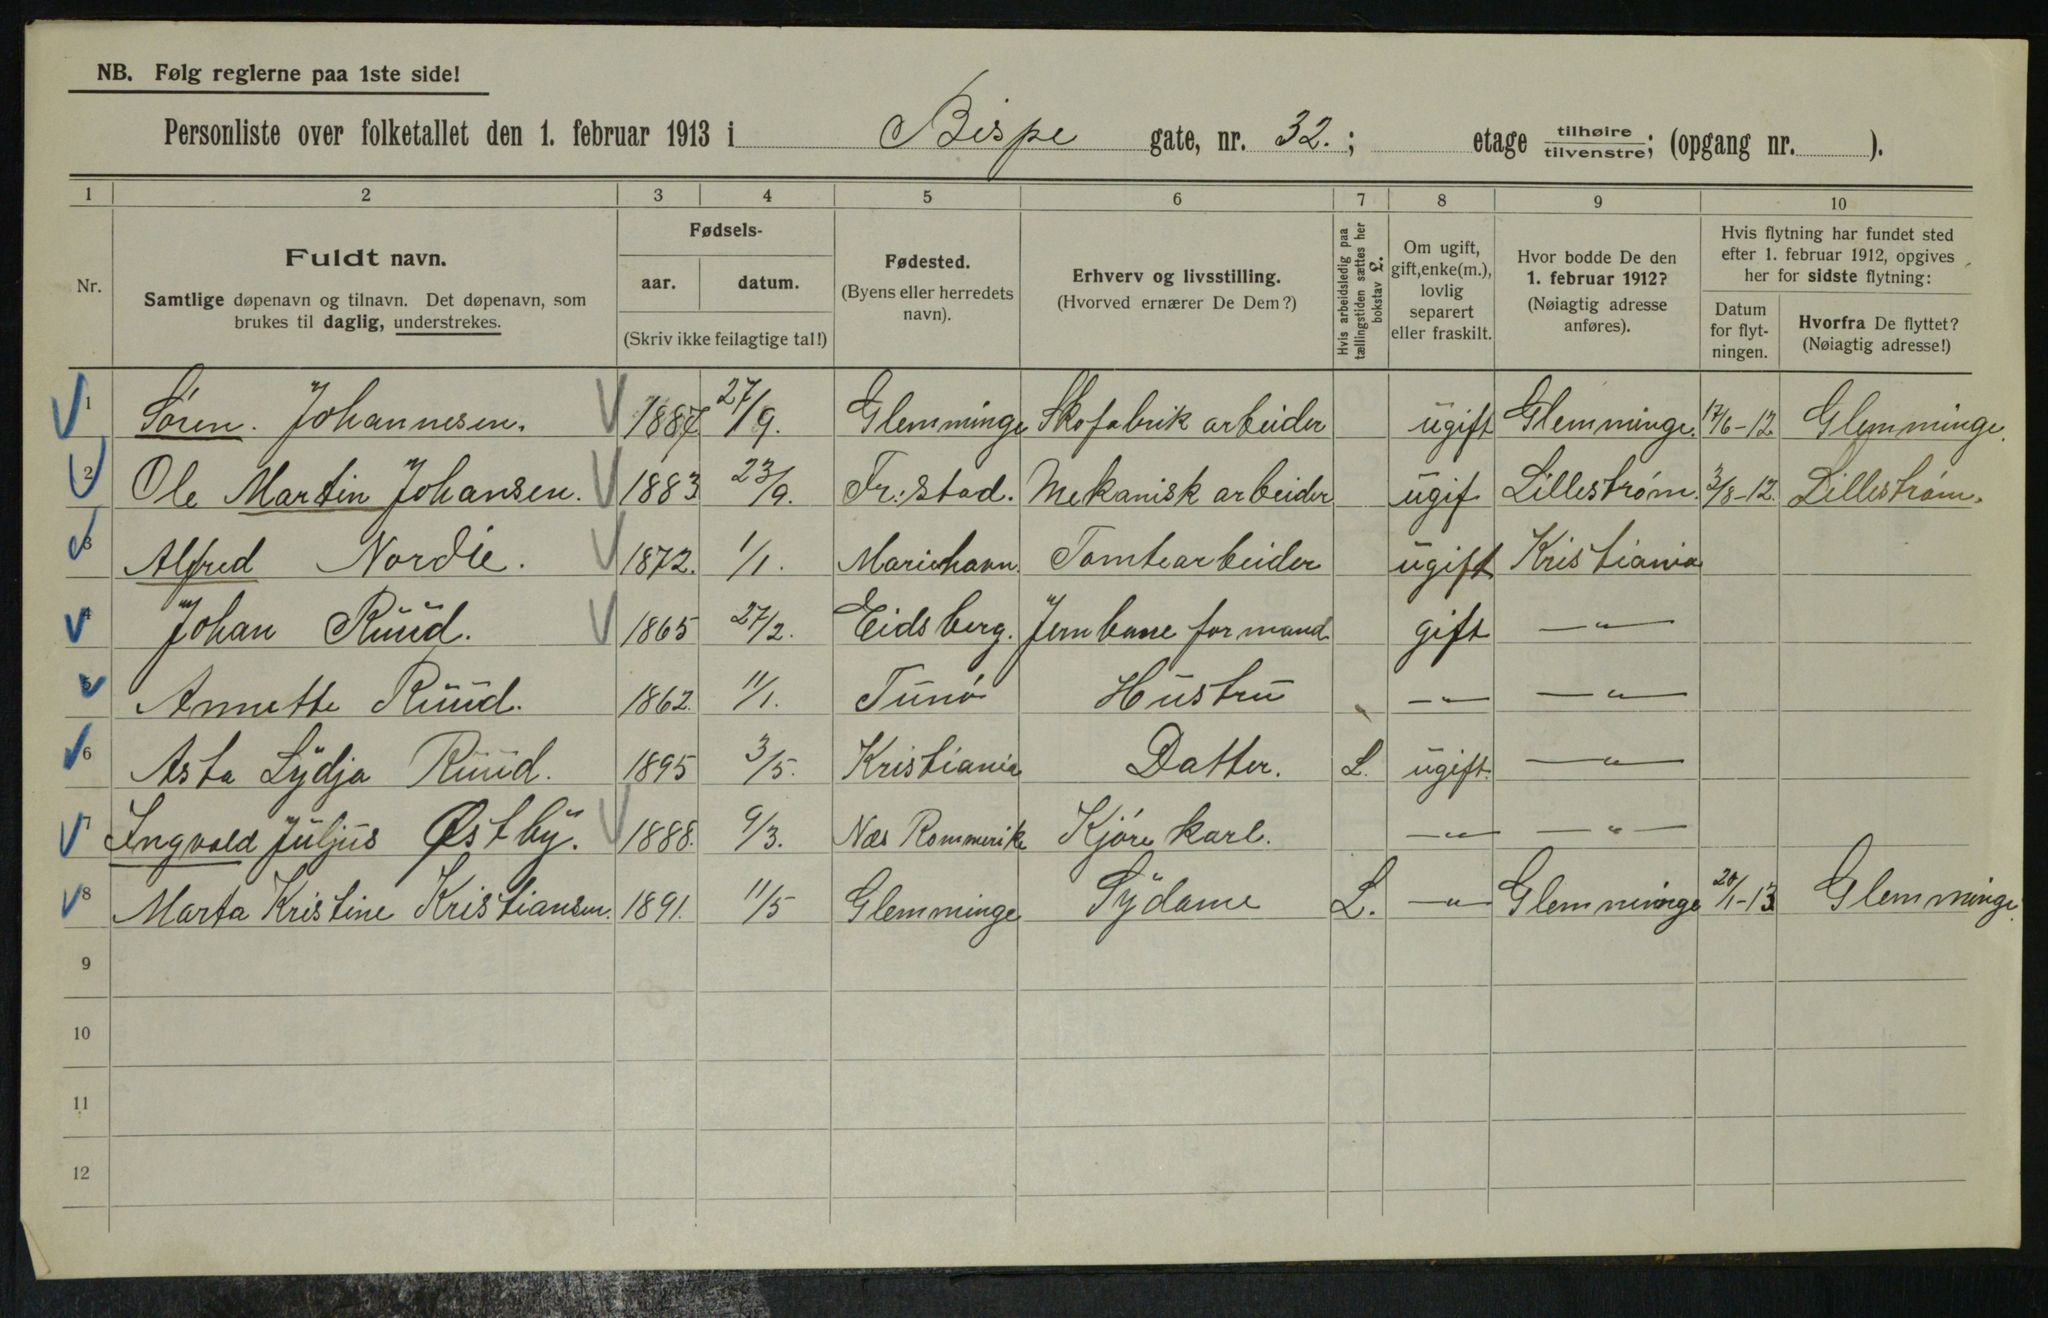 NB. Følg reglerne paa 1ste side!
Personliste over folketallet den 1. februar 1913 i Bispe gate, nr. 32. ; etage tilhøire/tilvenstre; (opgang nr. ).
1 2 3 4 5 6 7 8 9 10
Nr.
Fuldt navn.
Samtlige døpenavn og tilnavn. Det døpenavn, som
brukes til daglig, understrekes.
Fødsels-
aar. datum.
(Skriv ikke feilagtige tal!)
Fødested.
(Byens eller herredets
navn).
Erhverv og livsstilling.
(Hvorved ernærer De Dem?)
Hvis arbeidsledig paa
tællingstiden sættes her
bokstav L.
Om ugift,
gift, enke(m.),
lovlig
separert
eller fraskilt.
Hvor bodde De den
1. februar 1912?
(Nøiagtig adresse
anføres).
Hvis flytning har fundet sted
efter 1. februar 1912, opgives
her for sidste flytning:
Datum
for flyt-
ningen.
Hvorfra De flyttet?
(Nøiagtig adresse!)
1 Søren. Johannesen. 27/9. Glemminge Skofabrik arbeider ugift Glemminge. 17/6-12 Glemminge.
2 Ole Martin Johansen. 1883 23/9. Fr:stad. Mekanisk arbeider ugif Lillestrøm. 3/8-12. Lillestrøm.
3 Alfred Nordie. 1872. 1/1. Tomtearbeider ugift Kristiania
4 Johan Ruud. 1865 27/2. Eidsberg. Jernbane formand gift —"—
5 Annette Ruud. 1862. 11/1. Tunø Hustru —"— —"—
6 Asta Lydja Ruud. 1895 3/5. Kristiania Datter. L. ugift. —"—
7 Ingvald Juljus Østby. 1888. 9/3. Næs Rommerike Kjøre karl. —"— —"—
8 Marta Kristine Kristiansen. 1891. 11/5 Glemminge Sydame L. —"— Glemminge 20/1-13 Glemminge.
9
10
11
12